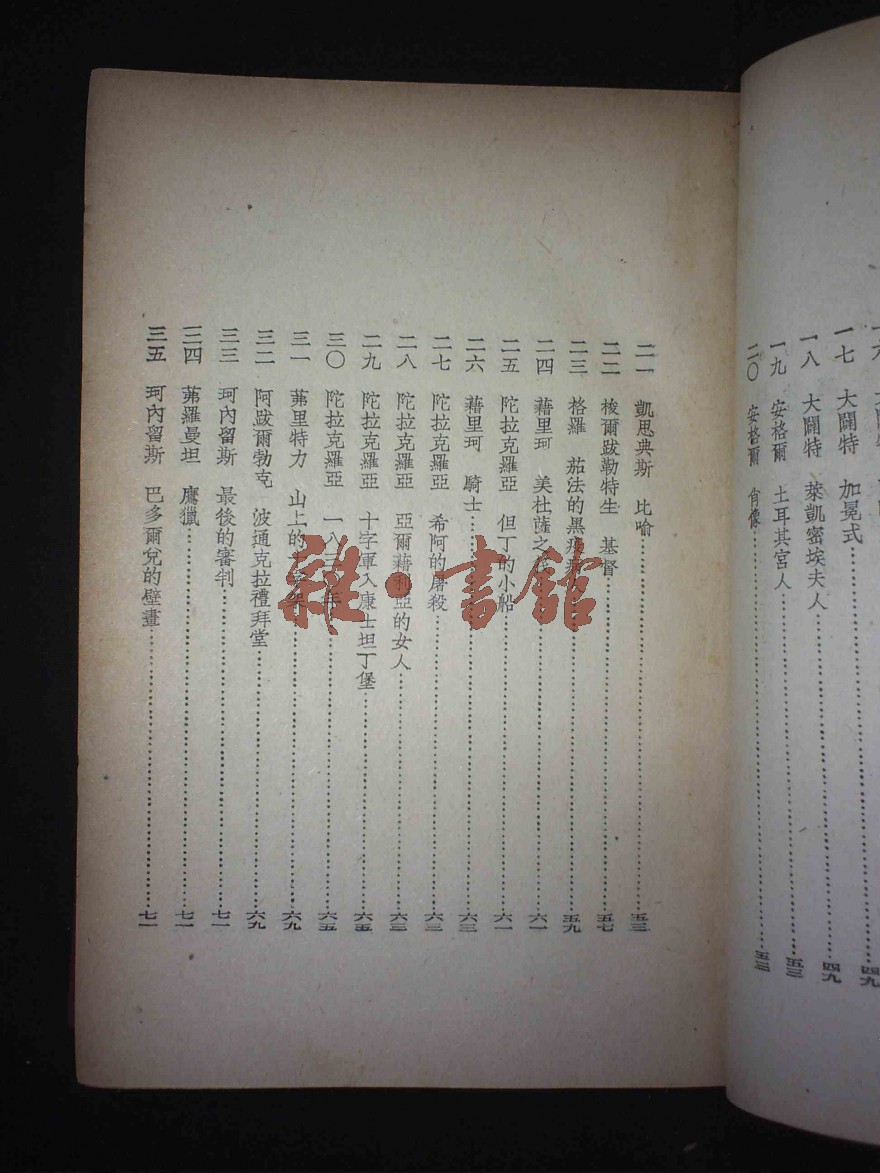 一七 大闢特 加冕式 四九
一八 大闢特 萊凱密埃夫人 四九
一九 安格爾 土耳其宮人 五三
二〇 安格爾 肖像 五三
二一 凱思典斯 比喻 五三
二二 梭爾跋勒特生 基督 五七
二三 格羅 茄法的黑 五九
二四 藉里珂 美杜薩之 六一
二五 陀拉克羅亞 但丁的小船 六一
二六 藉里珂 騎士 六三
二七 陀拉克羅亞 希阿的屠殺 六三
二八 陀拉克羅亞 亞爾藉利亞的女人 六三
二九 陀拉克羅亞 十字軍入康士坦丁堡 六五
三〇 陀拉克羅亞 一八三〇年 六五
三一 茀里特力 山上的十字架 六九
三二 阿跋爾勃克 波通克拉禮拜堂 六九
三三 珂內留斯 最後的審判 七一
三四 茀羅曼坦 鷹獵 七一
三五 珂內留斯 巴多爾兌的壁畫 七一
雜·書館